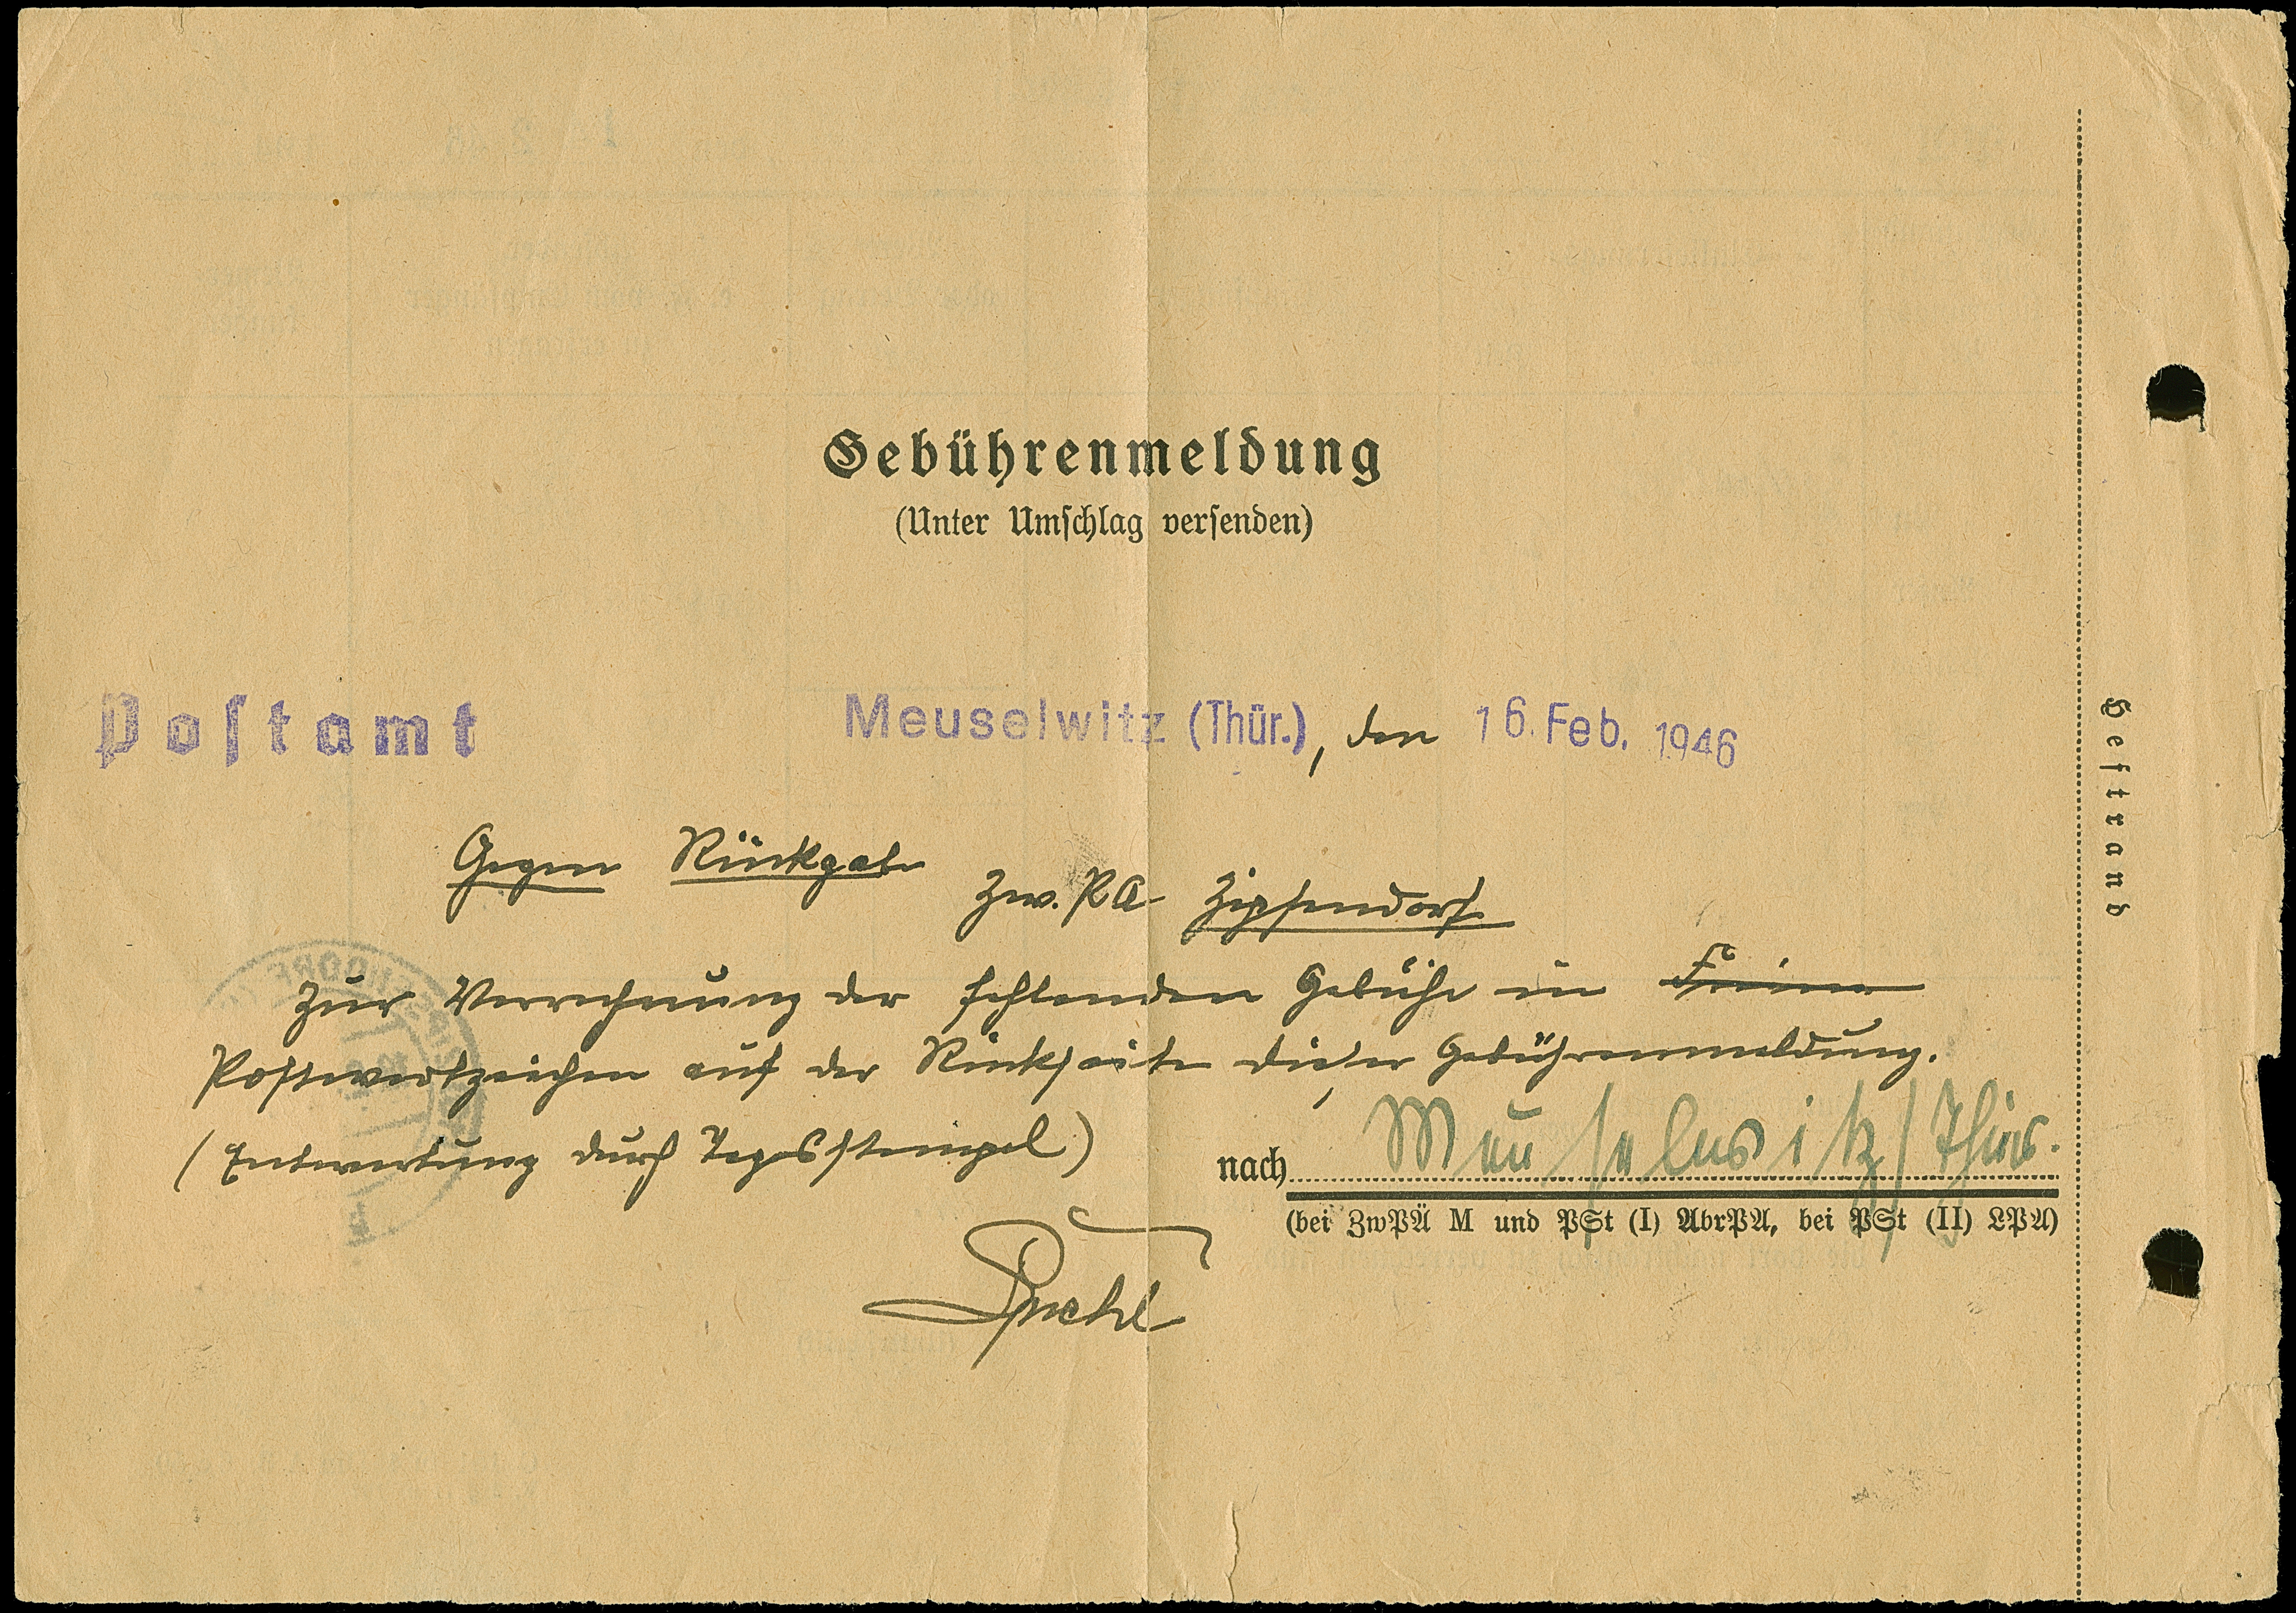 Gebührenmeldung
(Unter Umschlag versenden)
Postamt Meuselwitz (Thür.), den 16. Feb. 1946
Gegen Rückgabe
Zw. PA Zipsendorf
zur Verrechnung der fehlenden Gebühr in
Postwertzeichen auf der Rückseite dieser Gebührenmeldung.
(Entwertung durch Tagesstempel)
nach Meuselwitz/Thür.
(bei ZwPÄ M und PSt (I) AbrPA, bei PSt (II) LPA)
Heftrand